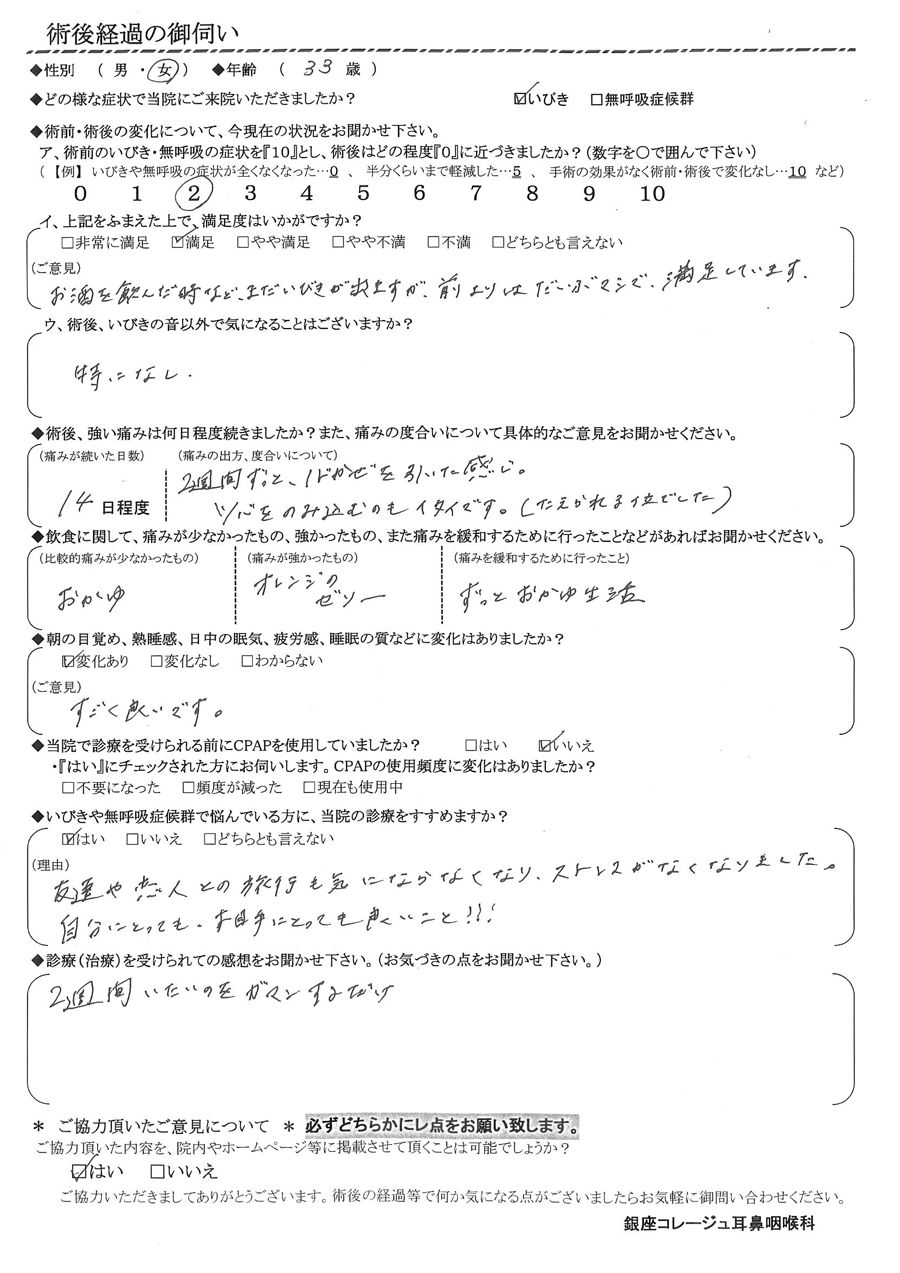 術後経過の御伺い
◆性別 （ 男 ・ 女 ） ◆年齢 （ 33 歳 ）
◆どの様な症状で当院にご来院いただきましたか？ ☑いびき □無呼吸症候群
◆術前・術後の変化について、今現在の状況をお聞かせ下さい。
ア、術前のいびき・無呼吸の症状を『10』とし、術後はどの程度『0』に近づきましたか？（数字を○で囲んで下さい）
（【例】 いびきや無呼吸の症状が全くなくなった…0 、 半分くらいまで軽減した…5 、 手術の効果がなく術前・術後で変化なし…10 など）
0 1 2 3 4 5 6 7 8 9 10
イ、上記をふまえた上で、満足度はいかがですか？
□非常に満足 ☑満足 □やや満足 □やや不満 □不満 □どちらとも言えない
（ご意見）
お酒を飲んだ時など、まだいびきが出ますが、前よりはだいぶマシで、満足しています。
ウ、術後、いびきの音以外で気になることはございますか？
特になし.
◆術後、強い痛みは何日程度続きましたか？また、痛みの度合いについて具体的なご意見をお聞かせください。
（痛みが続いた日数） （痛みの出方、度合いについて）
2週間ずっと、ひどかぜを引いた感じ。
14 日程度 ツバをのみ込むのもイタイです。（たえられる位でした）
◆飲食に関して、痛みが少なかったもの、強かったもの、また痛みを緩和するために行ったことなどがあればお聞かせください。
（比較的痛みが少なかったもの） （痛みが強かったもの） （痛みを緩和するために行ったこと）
おかゆ オレンジの ずっとおかゆ生活
ゼリー
◆朝の目覚め、熟睡感、日中の眠気、疲労感、睡眠の質などに変化はありましたか？
☑変化あり □変化なし □わからない
（ご意見）
すごく良いです。
◆当院で診療を受けられる前にCPAPを使用していましたか？ □はい ☑いいえ
・『はい』にチェックされた方にお伺いします。CPAPの使用頻度に変化はありましたか？
□不要になった □頻度が減った □現在も使用中
◆いびきや無呼吸症候群で悩んでいる方に、当院の診療をすすめますか？
☑はい □いいえ □どちらとも言えない
（理由）
友達や恋人との旅行も気にならなくなり、ストレスがなくなりました。
自分にとっても、お相手にとっても良いこと!!!
◆診療（治療）を受けられての感想をお聞かせ下さい。（お気づきの点をお聞かせ下さい。）
2週間いたいのをガマンするだけ
＊ ご協力頂いたご意見について ＊ 必ずどちらかにレ点をお願い致します。
ご協力頂いた内容を、院内やホームページ等に掲載させて頂くことは可能でしょうか？
☑はい □いいえ
ご協力いただきましてありがとうございます。術後の経過等で何か気になる点がございましたらお気軽に御問い合わせください。
銀座コレージュ耳鼻咽喉科